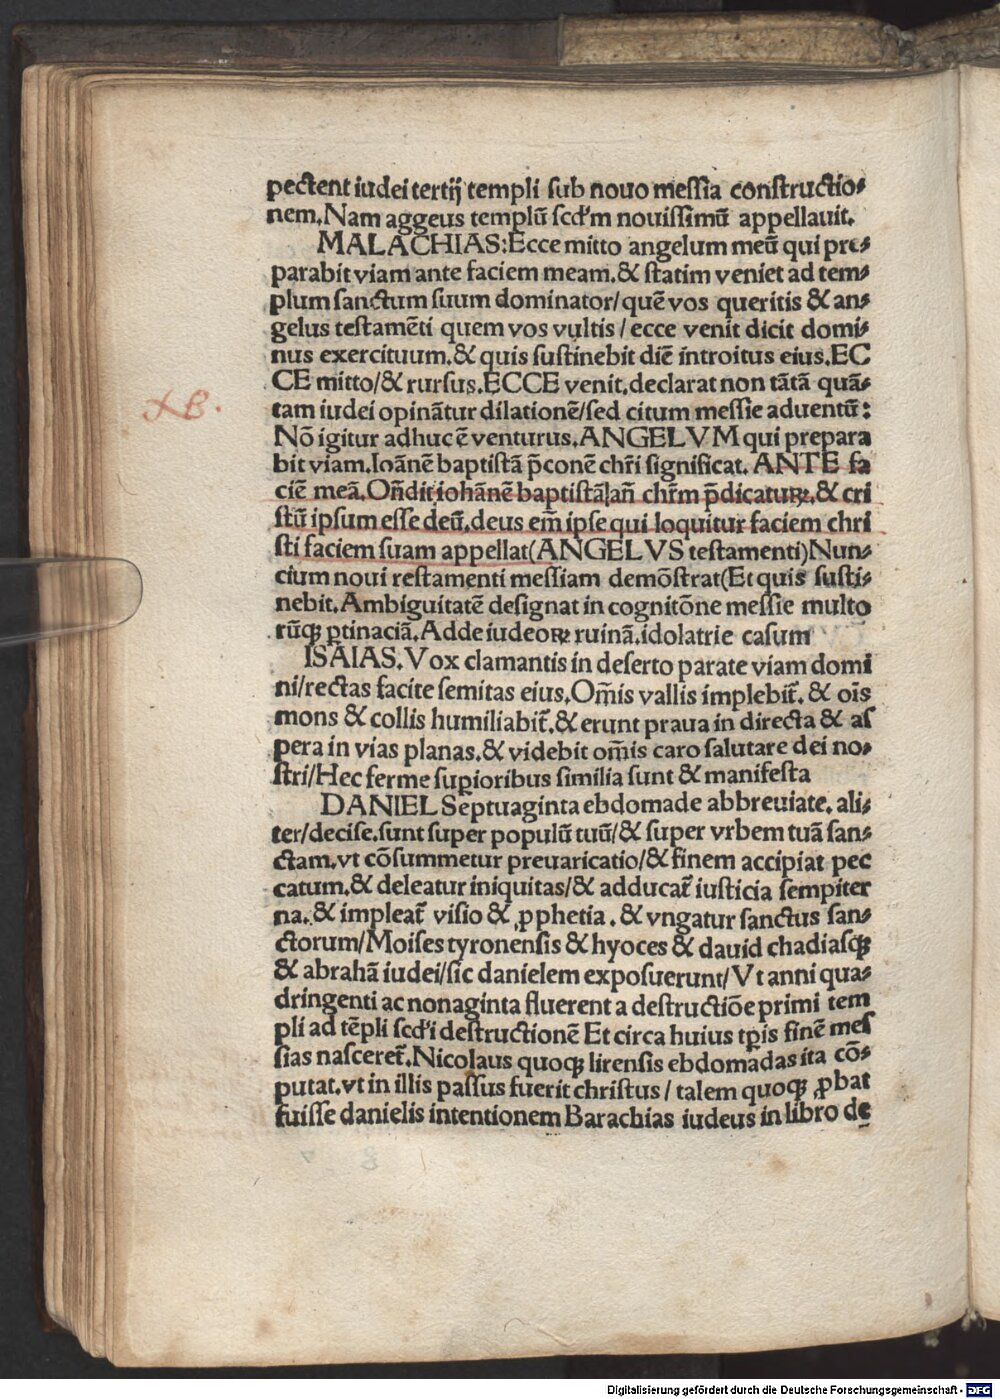 pectent iudei tertij templi sub nouo messia constructio⸗
nem. Nam aggeus templū scd'm nouissimū appellauit.
MALACHIAS: Ecce mitto angelum meū qui pre⸗
parabit viam ante faciem meam. & statim veniet ad tem⸗
plum sanctum suum dominator/ quē vos queritis & an⸗
gelus testamēti quem vos vultis / ecce venit dicit domi⸗
nus exercituum. & quis sustinebit diē introitus eius. EC
CE mitto/ & rursus. ECCE venit. declarat non tātā quā⸗
tam iudei opinātur dilationē/ sed citum messie aduentū:
Nō igitur adhuc ē venturus. ANGELVM qui prepara
bit viam. Ioānē baptistā p̄conē chr̄i significat. ANTE fa
ciē meā. On̄dit iohānē baptistā an̄ chr̄m p̄dicaturꝝ. & cri
stū ipsum esse deū. deus em̄ ipse qui loquitur faciem chri
sti faciem suam appellat (ANGELVS testamenti) Nun⸗
cium noui testamenti messiam demōstrat (Et quis susti⸗
nebit. Ambiguitatē designat in cognitōne messie multo
rūqꝫ ꝑtinaciā. Adde iudeoꝝ ruinā. idolatrie casum
ISAIAS. Vox clamantis in deserto parate viam domi
ni/ rectas facite semitas eius. Om̄is vallis implebit̄. & oīs
mons & collis humiliabit̄. & erunt praua in directa & as
pera in vias planas. & videbit om̄is caro salutare dei no⸗
stri/ Hec ferme suꝑioribus similia sunt & manifesta
DANIEL Septuaginta ebdomade abbreuiate. ali⸗
ter/ decise. sunt super populū tuū/ & super vrbem tuā san⸗
ctam. vt cōsummetur preuaricatio/ & finem accipiat pec
catum. & deleatur iniquitas/ & adducat̄ iusticia sempiter
na. & impleat̄ visio & ꝓphetia. & vngatur sanctus san⸗
ctorum/ Moises tyronensis & hyoces & dauid chadiasqꝫ
& abrahā iudei/ sic danielem exposuerunt/ Vt anni qua⸗
dringenti ac nonaginta fluerent a destructiōe primi tem
pli ad tēpli scd'i destructionē Et circa huius tꝑis finē mes
sias nasceret̄. Nicolaus quoqꝫ lirensis ebdomadas ita cō⸗
putat. vt in illis passus fuerit christus / talem quoqꝫ ꝓbat
fuisse danielis intentionem Barachias iudeus in libro de
Digitalisierung gefördert durch die Deutsche Forschungsgemeinschaft - DFG